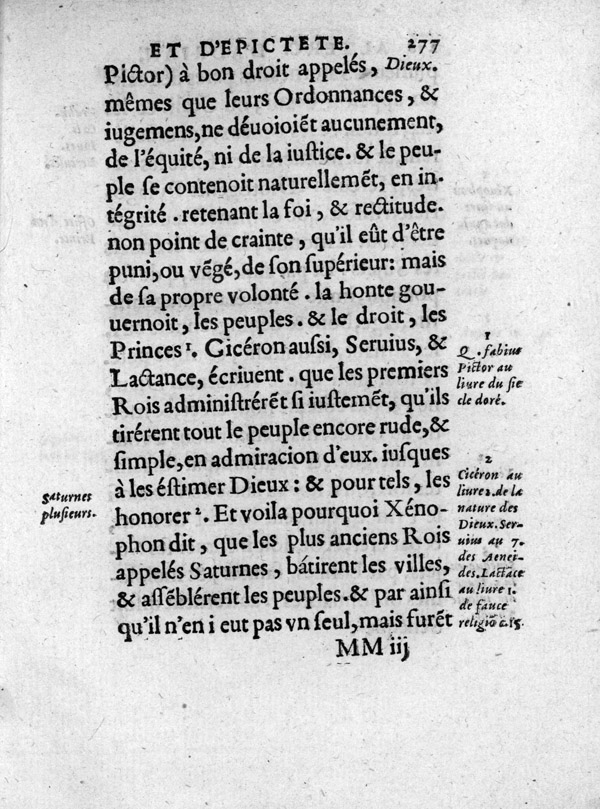 ET D'EPICTETE. 277
Pictor) à bon droit appelés, Dieux.
mêmes que leurs Ordonnances, &
iugemens, ne déuoioiẽt aucunement,
de l'équité, ni de la iustice. & le peu-
ple se contenoit naturellemẽt, en in-
tégrité. retenant la foi, & rectitude.
non point de crainte, qu'il eût d'être
puni, ou vẽgé, de son supérieur: mais
de sa propre volonté. la honte gou-
uernoit, les peuples. & le droit, les
Princes 1. Gicéron aussi, Seruius, &
Lactance, écriuent. que les premiers
Rois administrérẽt si iustemẽt, qu'ils
tirérent tout le peuple encore rude, &
simple, en admiracion d'eux. iusques
à les éstimer Dieux: & pour tels, les
honorer 2. Et voila pourquoi Xéno-
phon dit, que les plus anciens Rois
appelés Saturnes, bátirent les villes,
& assẽblérent les peuples. & par ainsi
qu'il n'en i eut pas vn seul, mais furẽt
MM iij
1
Q. fabius
Pictor au
liure du sie
cle doré.
2
Cicéron au
liure 2. de la
nature des
Dieux. Ser-
uius au 7.
des Aenei-
des. Lactãce
au liure 1.
de fauce
religiõ c. 15.
Saturnes
plusieurs.